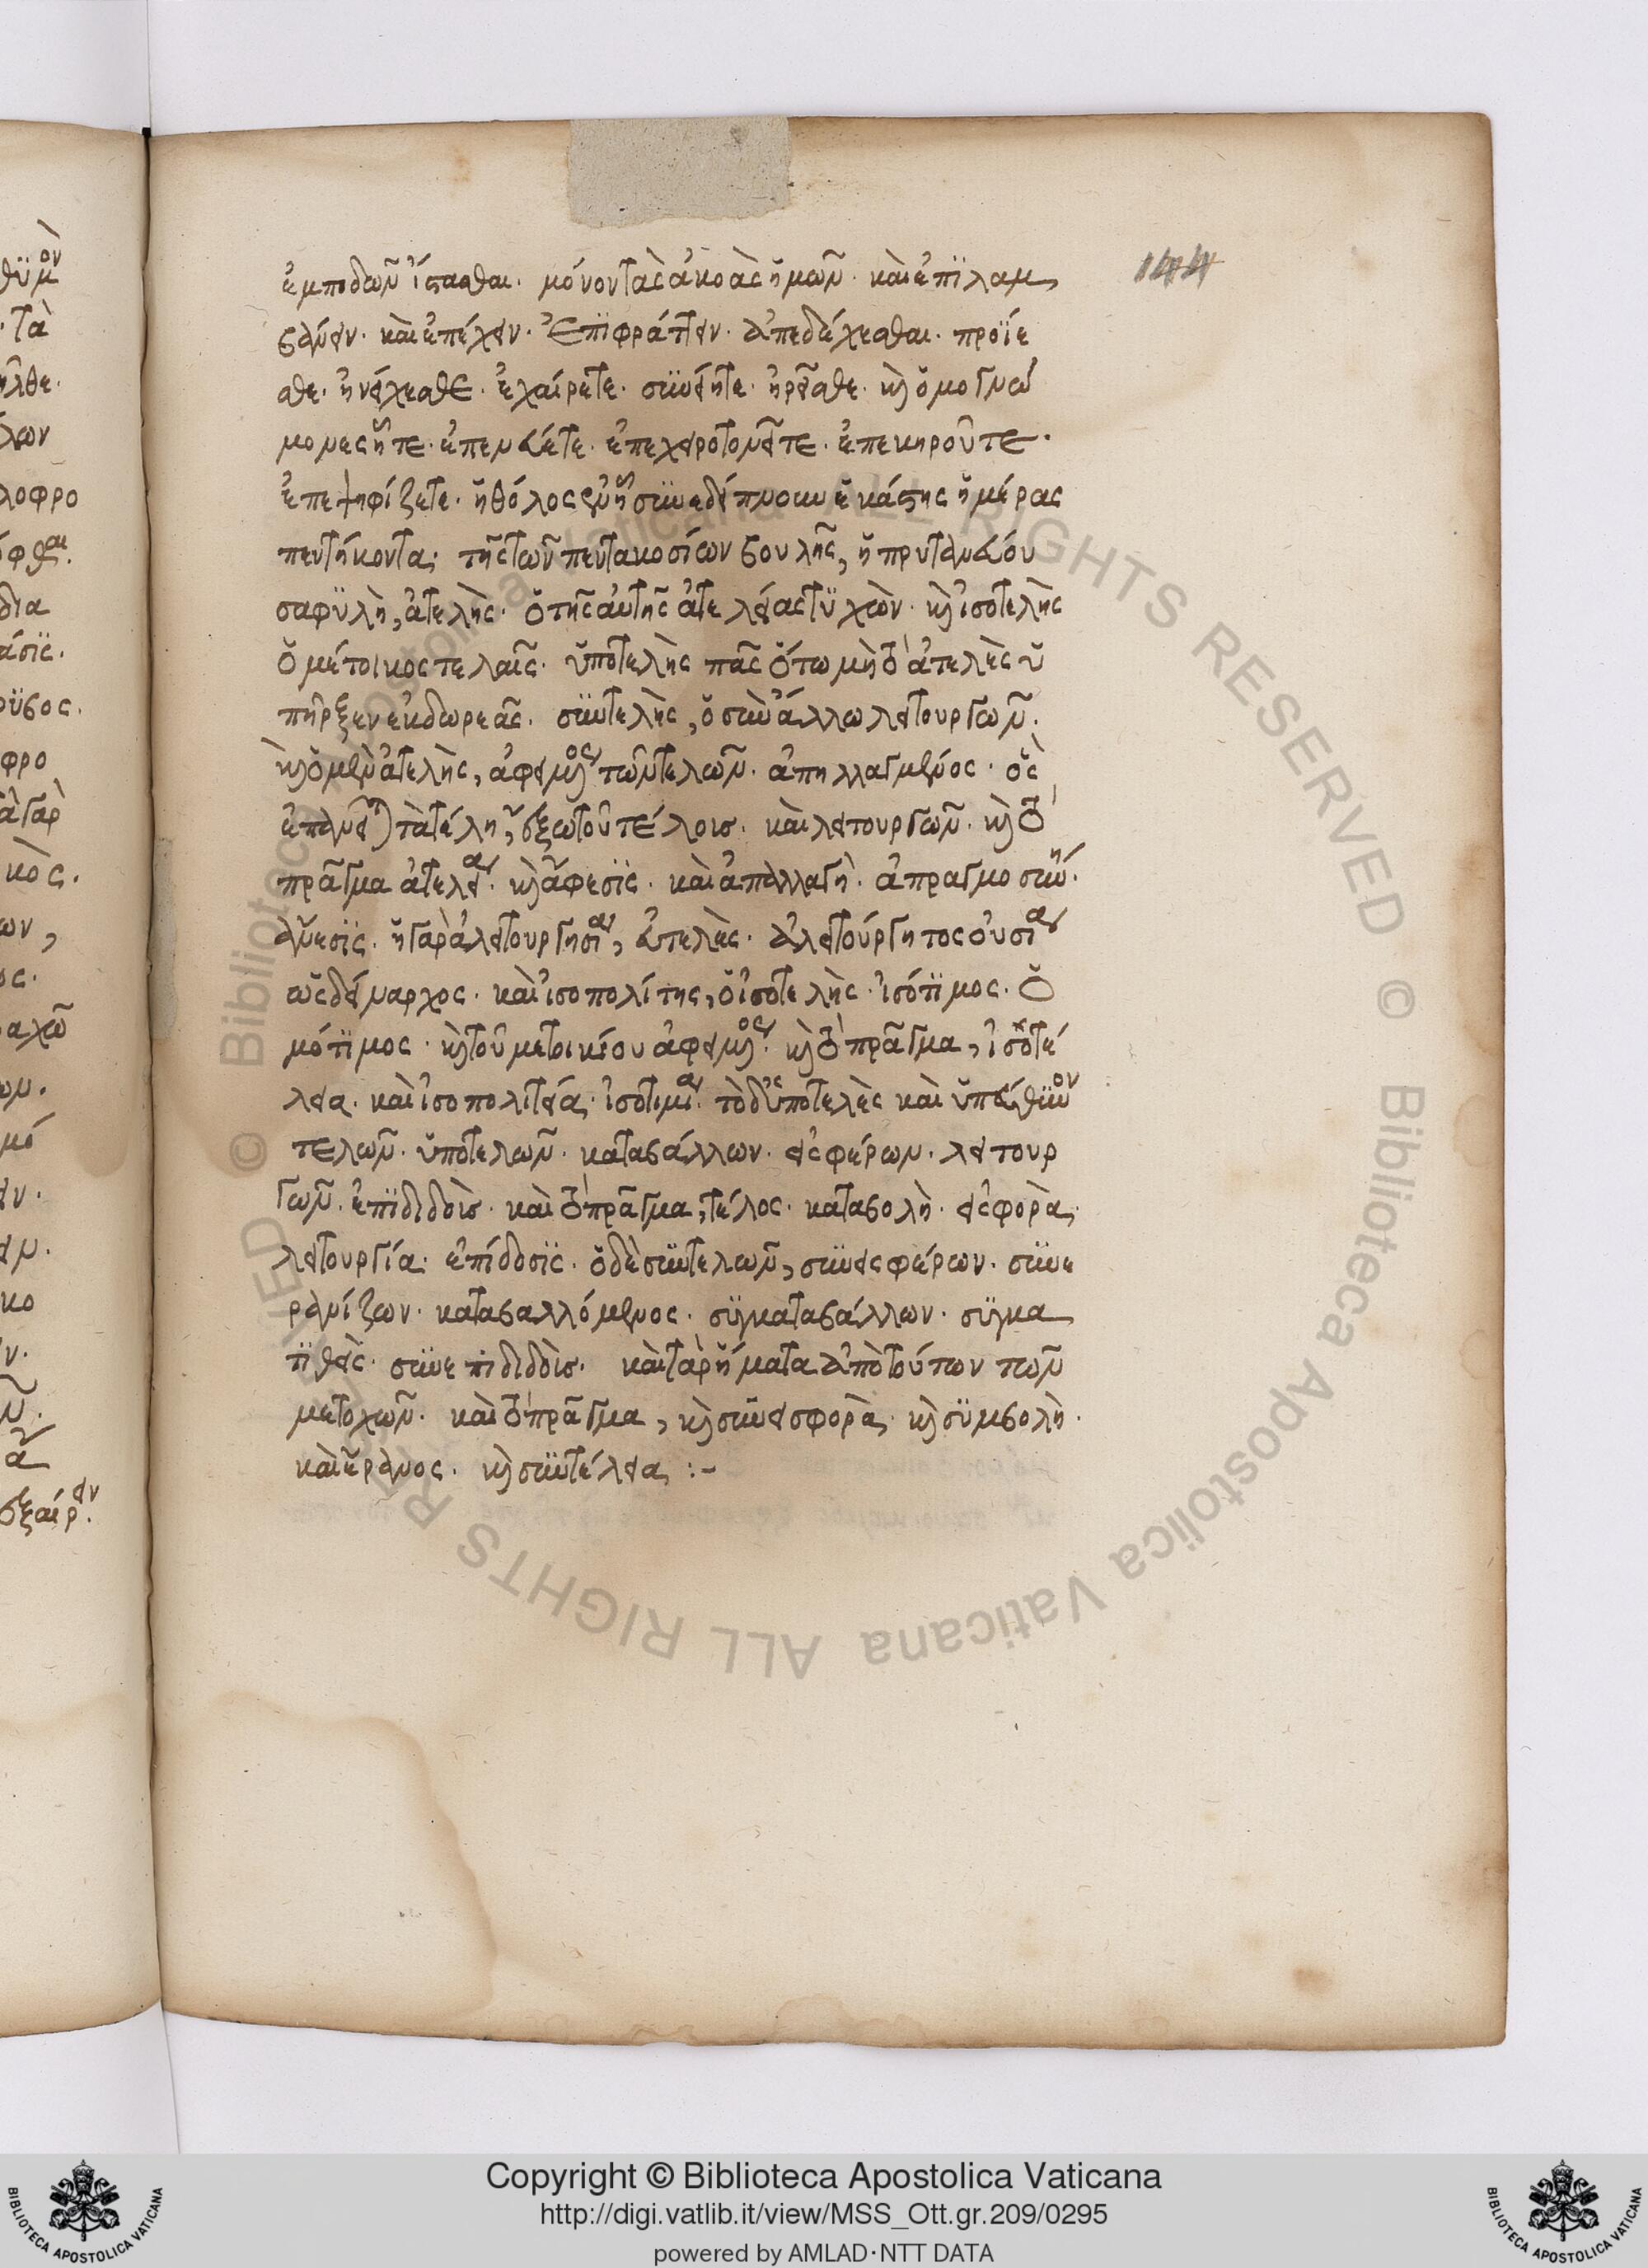 ἐμποδὼν ἵστασθαι. μόνον τὰς ἀκοὰς ἡμῶν. καὶ ἐπϊλαμ
βάνειν. καὶ ἐπέχειν. Ἐπϊφράττειν. ἀπεδέχεσθαι. προΐε
σθε. ἠνείχεσθε. ἐχαίρετε. συνῄητε. ᾑρεῖσθε. καὶ ὁμογνώ
μονες ἦτε. ἐπενεύετε. ἐπεχειροτονεῖτε. ἐπεκηροῦτε.
ἐπεψηφίζετε. ἡ θόλος ἐν ᾗ συνεδείπνουν ἑκάστης ἡμέρας
πεντήκοντα; τῆς τῶν πεντακοσίων βουλῆς, ἡ πρυτανεύου
σα φϋλὴ, ἀτελὴς. ὁ τῆς αὐτῆς ἀτελείας τϋχὼν. καὶ ἰσοτελὴς
ὁ μέτοικος τελαῖς. ὑποτελὴς πᾶς ὅτω μὴ τὸ ἀτελὲς ὑ
πῆρξεν ἐκ δωρεᾶς. συντελὴς, ὁ σὺν ἄλλω λειτουργῶν.
καὶ ὁ μὲν ἀτελὴς, ἀφειμένος τῶν τελῶν. ἀπηλλαγμένος. ὃς
τὰ τέλη, ἔξω τοῦ τέλους. καὶ λειτουργῶν. καὶ τὸ
πρᾶγμα ἀτέλεια. καὶ ἄφεσϊς. καὶ ἀπαλλαγὴ. ἀπραγμοσύνη.
ἄνεσϊς. ἡ γὰρ ἀλειτουργησία, ἀτελὲς. ἀλειτούργητος οὐσία
ὡς δείναρχος. καὶ ἰσοπολίτης, ὁ ἰσοτελὴς. ἰσότϊμος. ὁ
μότϊμος. καὶ τοῦ μετοικίου ἀφειμένος. καὶ τὸ πρᾶγμα, ἰσοτέ
λεια. καὶ ἰσοπολιτεία. ἰσοτιμία. τὸ δ' ὑποτελὲς καὶ ὑπεύθϋνον
τελῶν. ὑποτελῶν. καταβάλλων. εἰσφέρων. λειτουρ
γῶν. ἐπϊδιδοὺς. καὶ τὸ πρᾶγμα, τέλος. καταβολὴ. εἰσφορὰ.
λειτουργία. ἐπίδοσϊς. ὁ δὲ συντελῶν, συνεισφέρων. συνε
ρανίζων. καταβαλλόμενος. συγκαταβάλλων. συγκα
τϊθεὶς. συνεπιδιδοὺς. καὶ τὰ ῥήματα ἀπὸ τούτων τῶν
μετοχῶν. καὶ τὸ πρᾶγμα, καὶ συνεισφορὰ. καὶ σϋμβολὴ.
καὶ ἔρανος. καὶ συντέλεια :-
144
Copyright © Biblioteca Apostolica Vaticana
http://digi.vatlib.it/view/MSS_Ott.gr.209/0295
powered by AMLAD·NTT DATA
BIBLIOTECA APOSTOLICA VATICANA
BIBLIOTECA APOSTOLICA VATICANA
© Biblioteca Apostolica Vaticana ALL RIGHTS RESERVED © Biblioteca Apostolica Vaticana ALL RIGHTS RESERVED